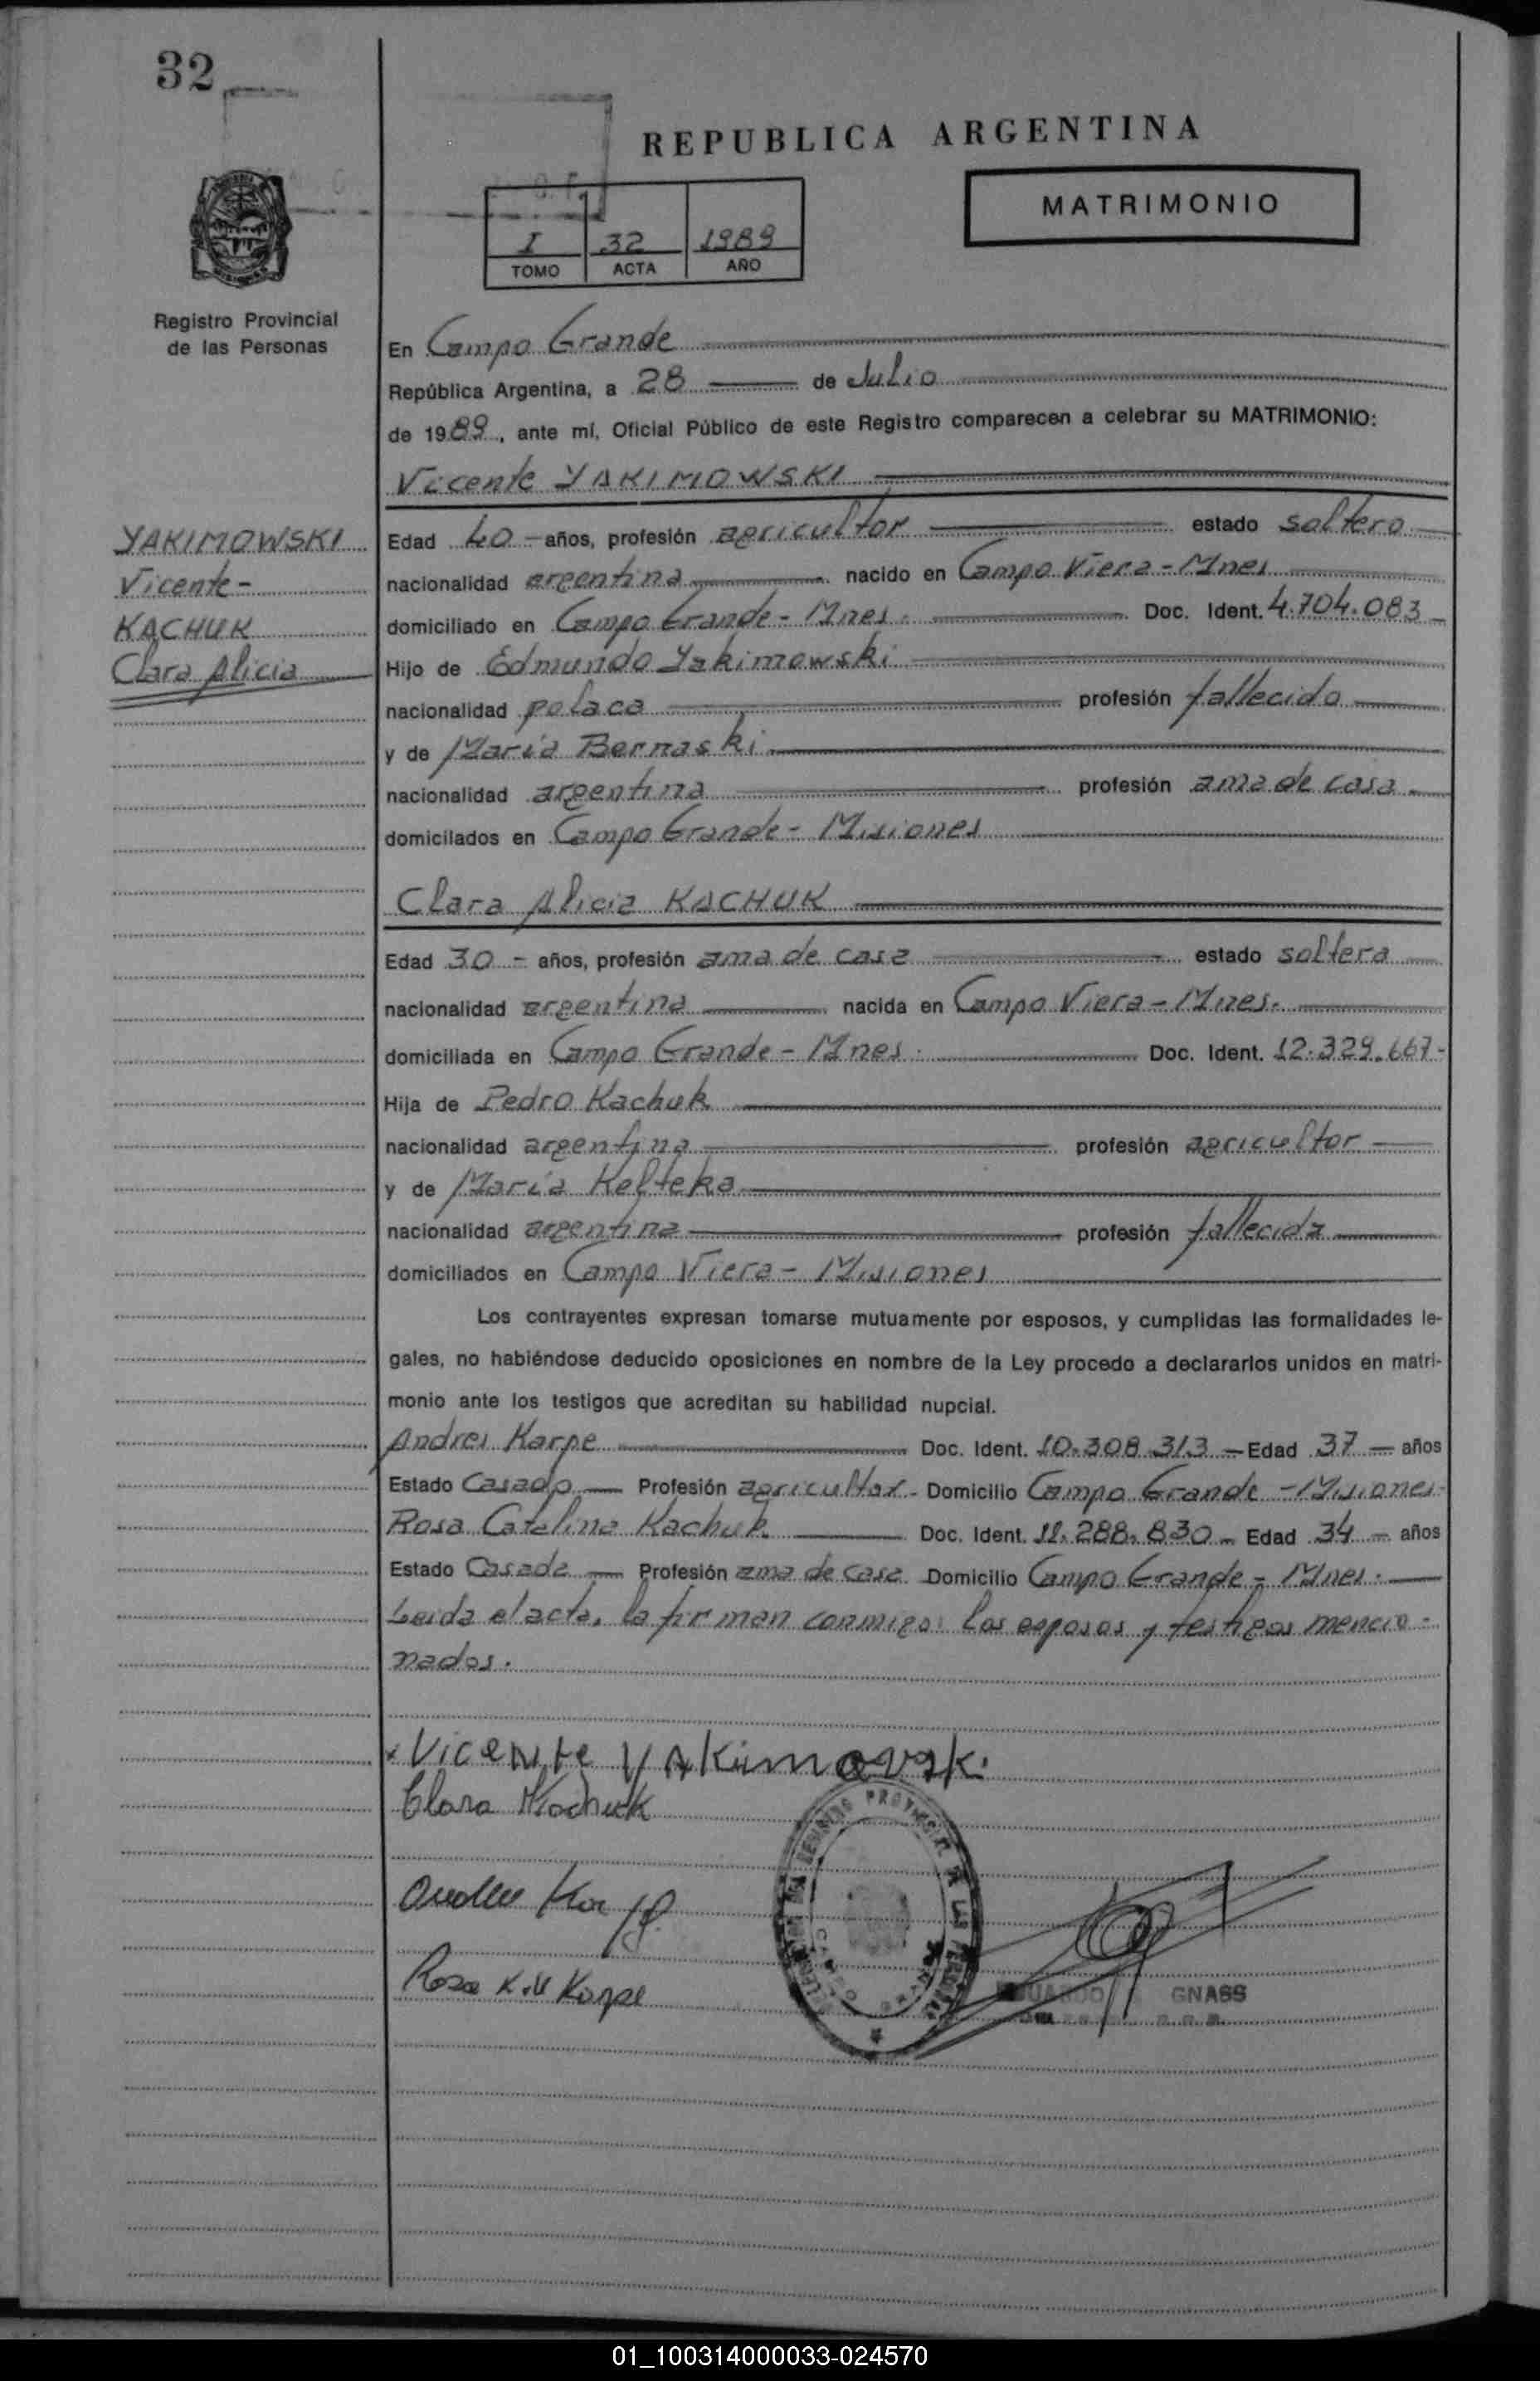 32
REPUBLICA ARGENTINA
MATRIMONIO
I 32 1989
TOMO ACTA AÑO
Registro Provincial
de las Personas
En Campo Grande
República Argentina, a 28 de Julio
de 1989, ante mí, Oficial Público de este Registro comparecen a celebrar su MATRIMONIO:
Vicente YAKIMOWSKI
YAKIMOWSKI
Vicente -
KACHUK
Clara Alicia
Edad 40 - años, profesión agricultor estado soltero
nacionalidad argentina nacido en Campo Viera - Mnes
domiciliado en Campo Grande - Mnes. Doc. Ident. 4.704.083
Hijo de Edmundo Yakimowski
nacionalidad polaca profesión fallecido
y de María Bernaski
nacionalidad argentina profesión ama de casa
domicilados en Campo Grande - Misiones
Clara Alicia KACHUK
Edad 30 - años, profesión ama de casa estado soltera
nacionalidad argentina nacida en Campo Viera - Mnes.
domiciliada en Campo Grande - Mnes. Doc. Ident. 12.329.667-
Hija de Pedro Kachuk
nacionalidad argentina profesión agricultor
y de María Kelteka
nacionalidad argentina profesión fallecida
domiciliados en Campo Viera - Misiones
Los contrayentes expresan tomarse mutuamente por esposos, y cumplidas las formalidades le-
gales, no habiéndose deducido oposiciones en nombre de la Ley procedo a declararlos unidos en matri-
monio ante los testigos que acreditan su habilidad nupcial.
Andres Karpe Doc. Ident. 10.308.313 - Edad 37 - años
Estado Casado Profesión agricultor - Domicilio Campo Grande - Misiones
Rosa Catalina Kachuk Doc. Ident. 11.288.830 - Edad 34 - años
Estado Casada Profesión ama de casa Domicilio Campo Grande - Mnes.
Leída el acta, la firman conmigo: los esposos y testigos mencio-
nados.
Vicente Yakimovski
Clara Kachuk
Rosa K. de Karpe
GNASS
01_100314000033-024570